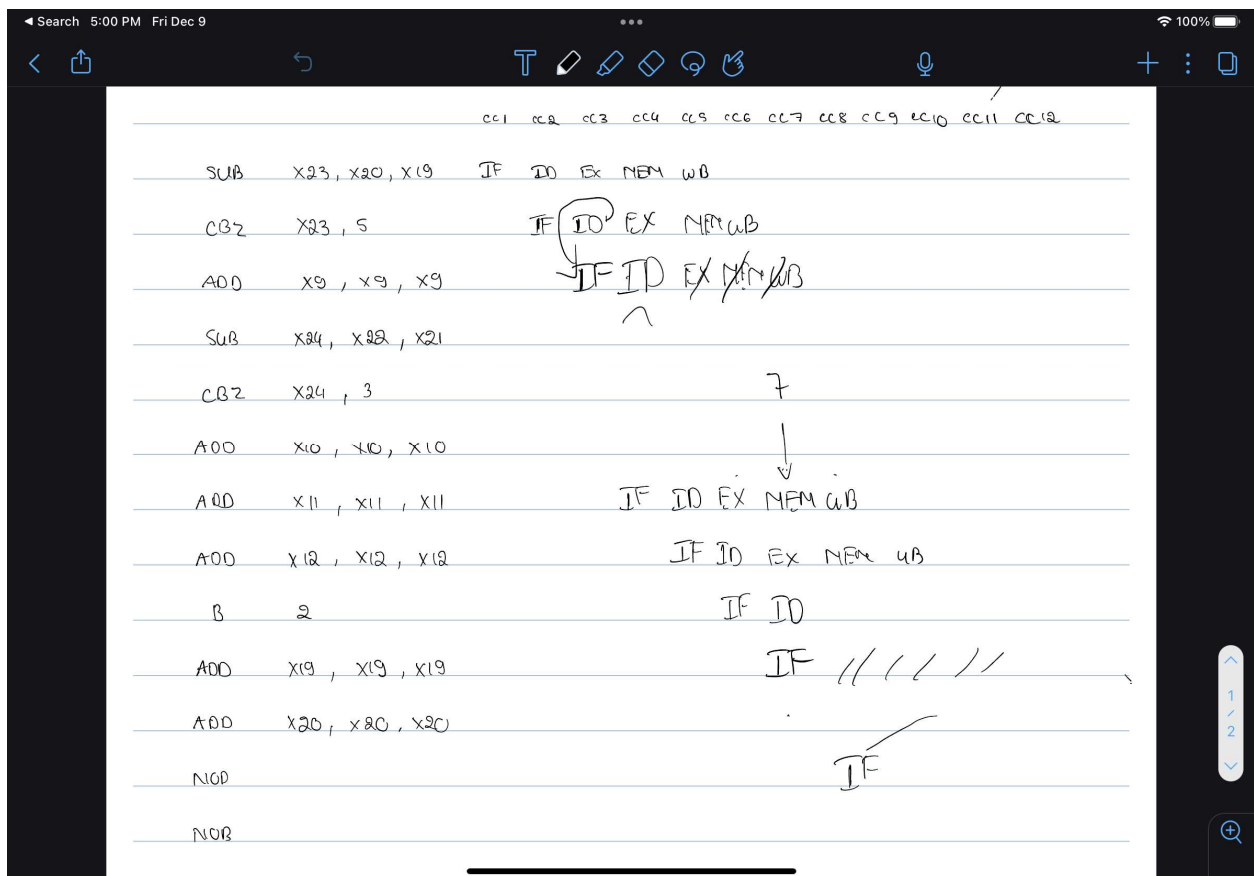 Search 5:00 PM Fri Dec 9 100%
T
CC1 CC2 CC3 CC4 CC5 CC6 CC7 CC8 CC9 CC10 CC11 CC12
SUB X23, X20, X19 IF ID EX MEM WB
CBZ X23, 5 IF ID EX MEM WB
ADD X9, X9, X9 IF ID EX MEM WB
SUB X24, X22, X21
CBZ X24, 3 7
ADD X10, X10, X10
ADD X11, X11, X11 IF ID EX MEM WB
ADD X12, X12, X12 IF ID EX MEM WB
B 2 IF ID
ADD X19, X19, X19 IF
ADD X20, X20, X20
NOP IF
NOB
1
/
2